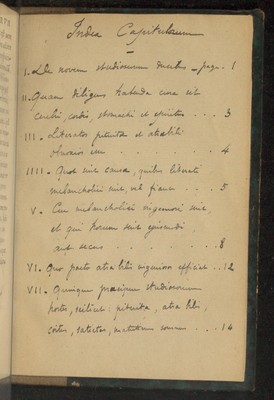 Index Capitulorum
I. De novem studiosorum ducibus - pag. 1
II. Quam diligens habenda cura sit
cerebri, cordis, stomachi et spiritus . . . 3
III - Literatos pituitæ et atræ bili
obnoxios esse . . . 4
IIII - Quot sint causæ, quibus literati
melancholici sint, vel fiant . . . 5
V - Cur melancholici ingeniosi sint
et qui horum sint ejusmodi
aut secus . . . . . . . 8
VI. Quo pacto atra bilis ingeniosos efficiat . . 12
VII - Quinque præcipui studiosorum
hostes, scilicet: pituita, atra bilis,
coitus, satietas, matutinus somnus . . . 14